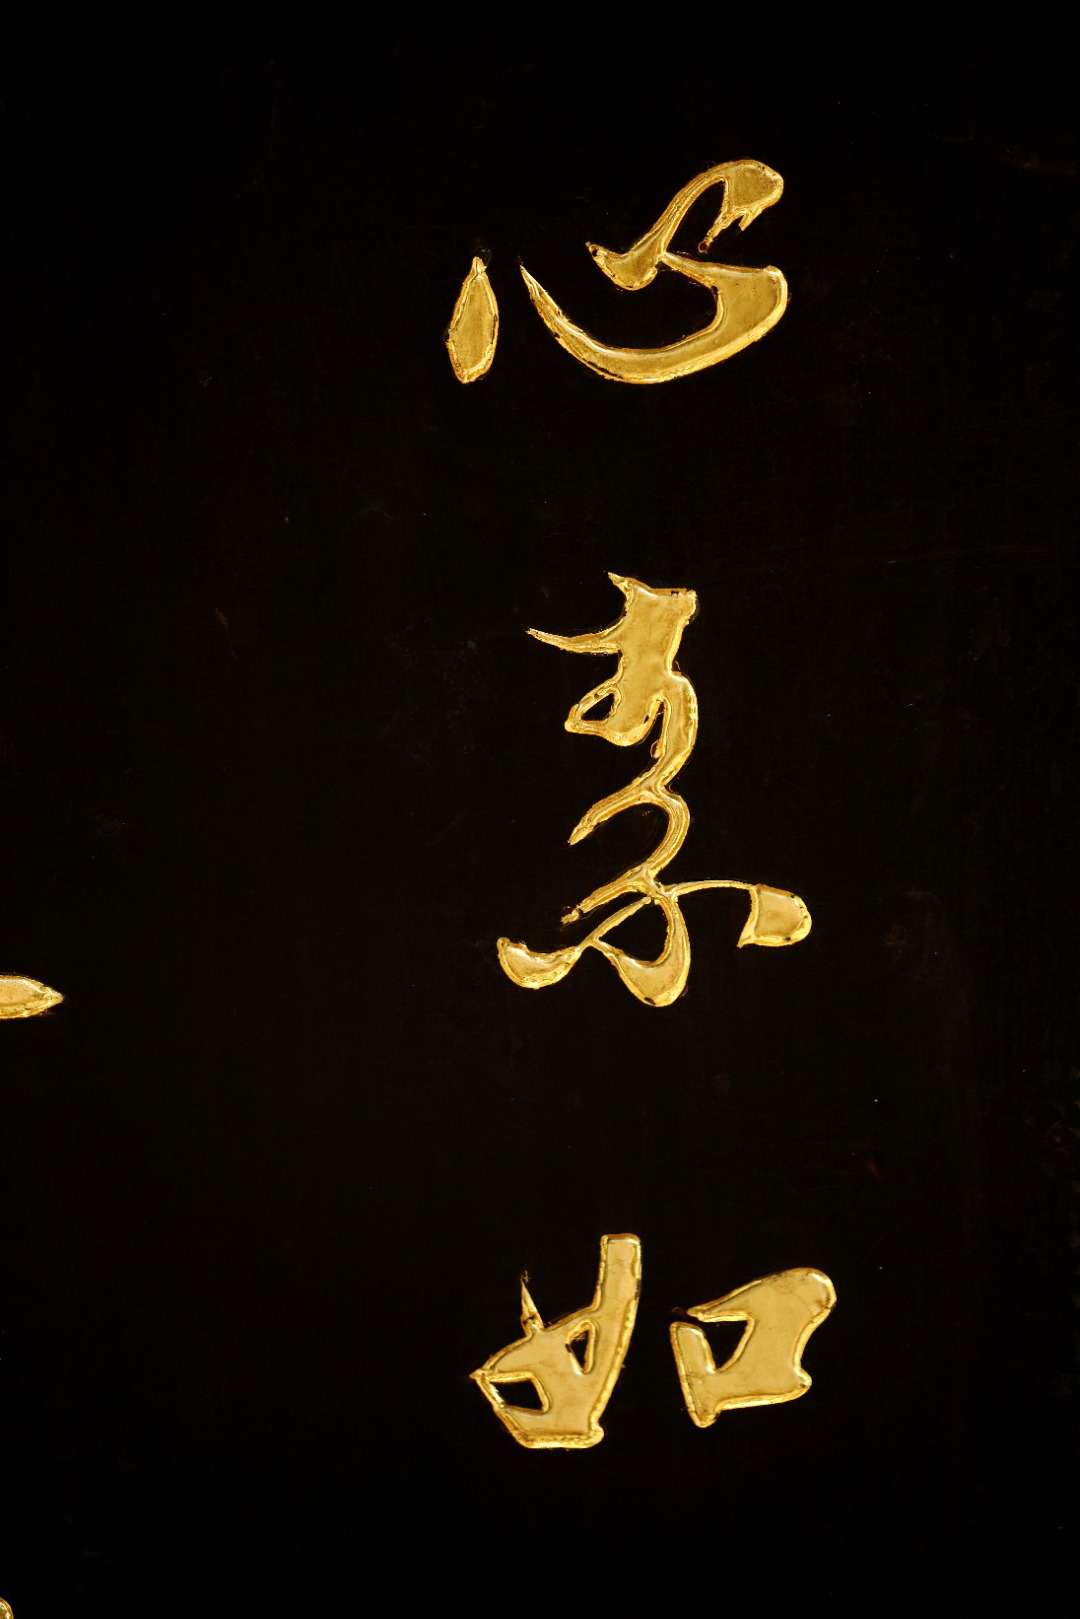 心素如